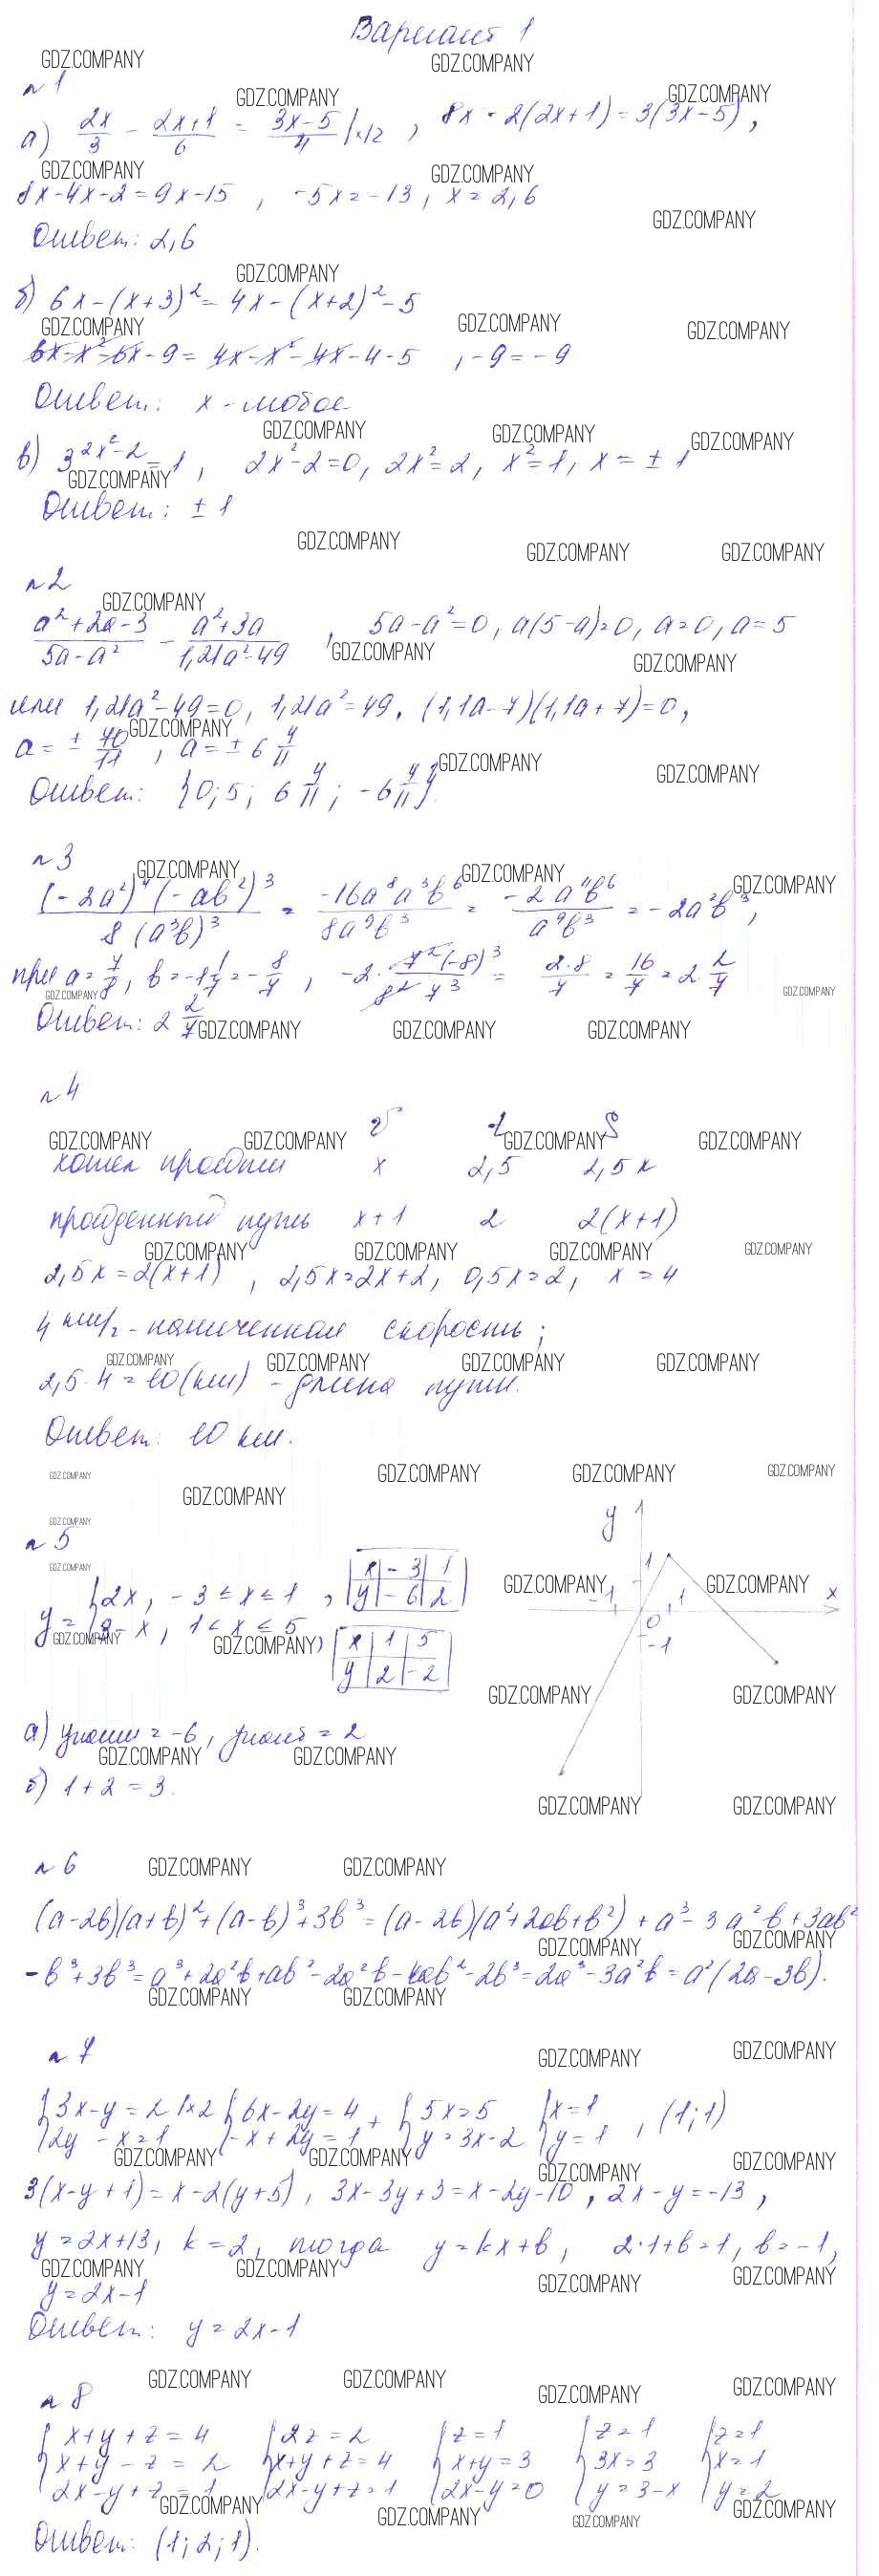 Вариант 1
GDZ.COMPANY GDZ.COMPANY
№1
GDZ.COMPANY GDZ.COMPANY
а) 2x/3 - (2x+1)/6 = (3x-5)/4 |×12 , 8x - 2(2x+1) = 3(3x-5),
GDZ.COMPANY GDZ.COMPANY
8x-4x-2=9x-15 , -5x=-13, x=2,6
GDZ.COMPANY
Ответ: 2,6
GDZ.COMPANY
б) 6x-(x+3)²=4x-(x+2)²-5
GDZ.COMPANY GDZ.COMPANY GDZ.COMPANY
6x-x²-6x-9=4x-x²-4x-4-5 , -9=-9
Ответ: x - любое
GDZ.COMPANY GDZ.COMPANY GDZ.COMPANY
в) 3^(2x²-2)=1, 2x²-2=0, 2x²=2, x²=1, x=±1
GDZ.COMPANY
Ответ: ±1
GDZ.COMPANY GDZ.COMPANY GDZ.COMPANY
№2
GDZ.COMPANY
(a²+2a-3)/(5a-a²) - (a²+3a)/(1,21a²-49) , 5a-a²=0, a(5-a)=0, a=0, a=5
GDZ.COMPANY GDZ.COMPANY
или 1,21a²-49=0, 1,21a²=49, (1,1a-7)(1,1a+7)=0,
GDZ.COMPANY
a=± 70/11 , a=± 6 4/11
GDZ.COMPANY GDZ.COMPANY
Ответ: {0; 5; 6 4/11; -6 4/11}.
№3
GDZ.COMPANY GDZ.COMPANY GDZ.COMPANY
(-2a²)⁴(-ab²)³/(8(a³b)³) = -16a⁸a³b⁶/(8a⁹b³) = -2a¹¹b⁶/(a⁹b³) = -2a²b³,
при a=7/8, b=-1 1/7=-8/7, -2·7²(-8)³/(8²·7³) = 2·8/7 = 16/7 = 2 2/7
GDZ.COMPANY GDZ.COMPANY
Ответ: 2 2/7
GDZ.COMPANY GDZ.COMPANY GDZ.COMPANY
№4
v t S
GDZ.COMPANY GDZ.COMPANY GDZ.COMPANY GDZ.COMPANY
хотел пройти x 2,5 2,5x
пройденный путь x+1 2 2(x+1)
GDZ.COMPANY GDZ.COMPANY GDZ.COMPANY GDZ.COMPANY
2,5x=2(x+1) , 2,5x=2x+2, 0,5x=2, x=4
4 км/ч - намеченная скорость;
GDZ.COMPANY GDZ.COMPANY GDZ.COMPANY GDZ.COMPANY
2,5·4=10(км) - длина пути.
Ответ: 10 км.
GDZ.COMPANY GDZ.COMPANY GDZ.COMPANY GDZ.COMPANY
GDZ.COMPANY
GDZ.COMPANY
№5
GDZ.COMPANY GDZ.COMPANY GDZ.COMPANY
y = { 2x, -3≤x≤1 , x -3 1
y -6 2
3-x, 1<x≤5 , x 1 5
y 2 -2
GDZ.COMPANY GDZ.COMPANY
y 1 -1 0 1 x -1
GDZ.COMPANY GDZ.COMPANY
а) yнаим=-6, yнаиб=2
GDZ.COMPANY GDZ.COMPANY
б) 1+2=3.
GDZ.COMPANY GDZ.COMPANY
№6
GDZ.COMPANY GDZ.COMPANY
(a-2b)(a+b)²+(a-b)³+3b³=(a-2b)(a²+2ab+b²)+a³-3a²b+3ab²
GDZ.COMPANY GDZ.COMPANY
-b³+3b³=a³+2a²b+ab²-2a²b-4ab²-2b³=2a³-3a²b=a²(2a-3b).
GDZ.COMPANY GDZ.COMPANY
№7
GDZ.COMPANY GDZ.COMPANY
{3x-y=2 |×2 {6x-2y=4 + {5x=5 {x=1
2y-x=1 -x+2y=1 y=3x-2 y=1 , (1;1)
GDZ.COMPANY GDZ.COMPANY GDZ.COMPANY GDZ.COMPANY
3(x-y+1)=x-2(y+5), 3x-3y+3=x-2y-10, 2x-y=-13,
y=2x+13, k=2, тогда y=kx+b, 2·1+b=1, b=-1,
GDZ.COMPANY GDZ.COMPANY GDZ.COMPANY GDZ.COMPANY
y=2x-1
Ответ: y=2x-1
GDZ.COMPANY GDZ.COMPANY GDZ.COMPANY GDZ.COMPANY
№8
{x+y+z=4 {2z=2 {z=1 {z=1 {z=1
x+y-z=2 x+y+z=4 x+y=3 3x=3 x=1
2x-y+z=1 2x-y+z=1 2x-y=0 y=3-x y=2
GDZ.COMPANY GDZ.COMPANY GDZ.COMPANY GDZ.COMPANY
Ответ: (1; 2; 1).